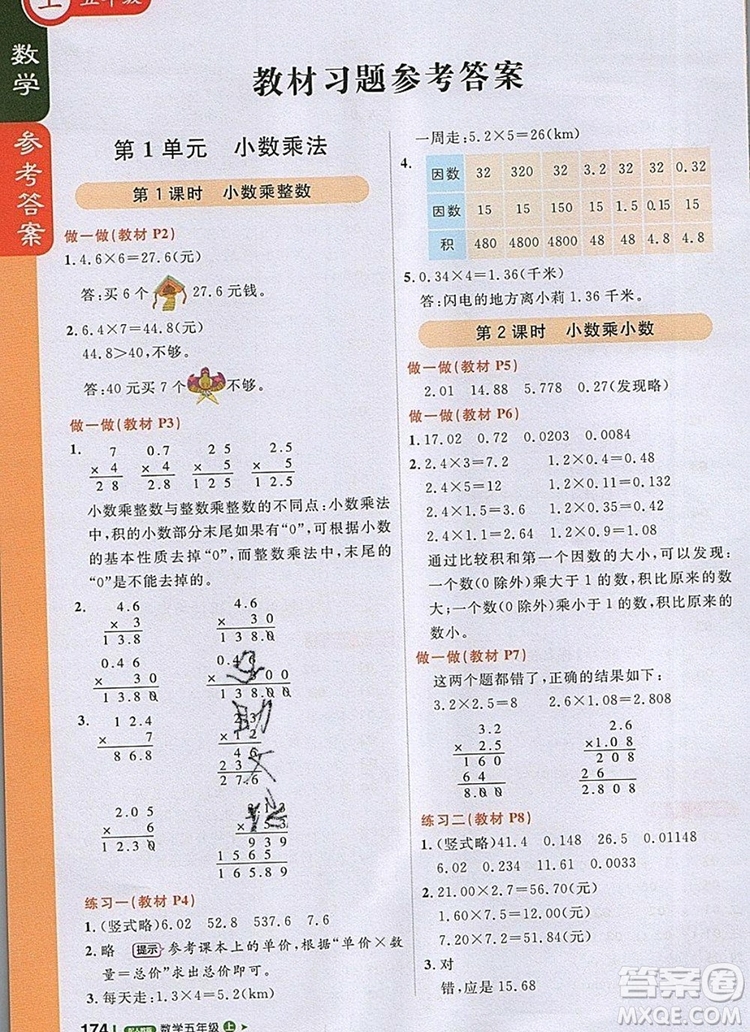 上 五年级
数学
参考答案
教材习题参考答案
第1单元 小数乘法
第1课时 小数乘整数
做一做(教材 P2)
1. 4.6×6=27.6(元)
答:买6个 27.6元钱。
2. 6.4×7=44.8(元)
44.8>40,不够。
答:40元买7个 不够。
做一做(教材 P3)
1. 7 0.7 2 5 2.5
× 4 × 4 × 5 × 5
2 8 2.8 1 2 5 1 2.5
小数乘整数与整数乘整数的不同点:小数乘法
中,积的小数部分末尾如果有“0”,可根据小数
的基本性质去掉“0”,而整数乘法中,末尾的
“0”是不能去掉的。
2. 4.6 4.6
× 3 × 3 0
1 3.8 1 3 8.0
0.4 6
× 3 0 × 3 0 0
1 3.8 0 1 3 8.0 0
3. 1 2.4 2.3
× 7 × 1 2
8 6.8
2 3
2 7.6
2.0 5
× 6
1 2.3 0
9 3 9
1 5 6 5
练习一(教材 P4)
1. (竖式略)6.02 52.8 537.6 7.6
2. 略 提示 参考课本上的单价,根据“单价×数
量=总价”求出总价即可。
3. 每天走:1.3×4=5.2(km)
174 数学五年级 上
一周走:5.2×5=26(km)
4. 因数 32 320 32 32 32 0.32
因数 15 15 150 1.5 0.15 15
积 480 4800 4800 48 4.8 4.8
5. 0.34×4=1.36(千米)
答:闪电的地方离小莉1.36千米。
第2课时 小数乘小数
做一做(教材 P5)
2.01 14.88 5.778 0.27(发现略)
做一做(教材 P6)
1. 17.02 0.72 0.0203 0.0084
2. 2.4×3=7.2 1.2×0.4=0.48
2.4×5=12 1.2×0.2=0.24
2.4×1.5=3.6 1.2×0.5=0.6
2.4×1.1=2.64 1.2×0.9=1.08
通过比较积和第一个因数的大小,可以发现:
一个数(0除外)乘大于1的数,积比原来的数
大;一个数(0除外)乘小于1的数,积比原来的
数小。
做一做(教材 P7)
这两个题都错了,正确的结果如下:
3.2×2.5=8 2.6×1.08=2.808
3.2 2.6
× 2.5 ×1.0 8
1 6 0 2 0 8
6 4 2 6
8.0 0 2.8 0 8
练习二(教材 P8)
1. (竖式略)41.4 0.148 26.5 0.01148
6.02 0.234 11.16 0.0033
2. 21.00×2.7=56.70(元)
1.60×7.5=12.00(元)
7.20×7.2=51.84(元)
3. 对
错,应是15.68
答案圈
MXQE.COM